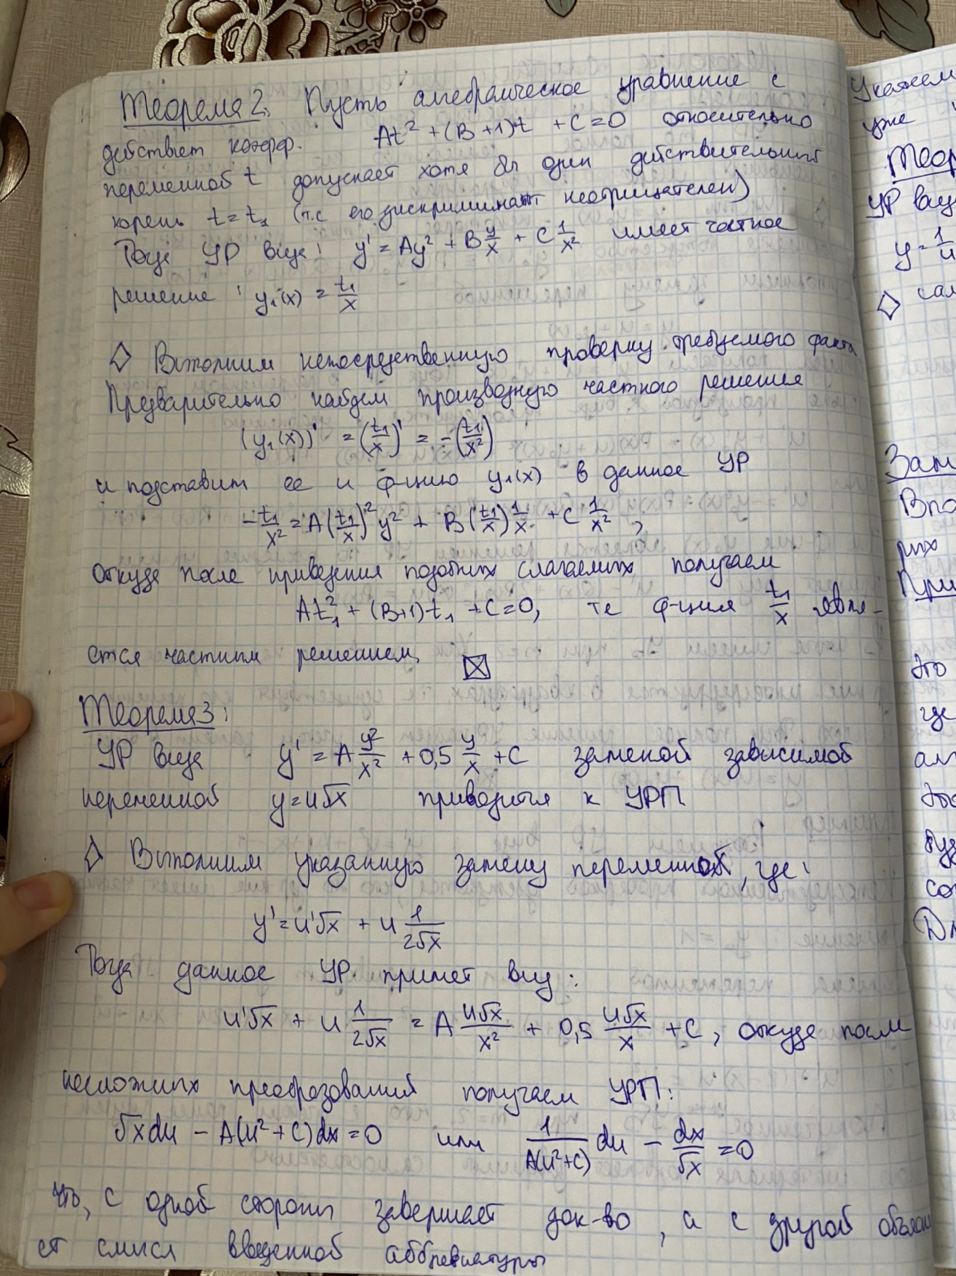 Теорема 2. Пусть алгебраическое уравнение с
действит коэфф. At² + (B+1)t + C = 0 относительно
переменной t допускает хотя бы один действительный
корень t = t₁ (т.с его дискриминант неотрицателен)
Тогда УР вида: y' = Ay² + B y/x + C 1/x² имеет частное
решение: y₁(x) = t₁/x
◊ Выполним непосредственную проверку требуемого факта
Предварительно найдем производную частного решения
(y₁(x))' = (t₁/x)' = -(t₁/x²)
и подставит ее и ф-цию y₁(x) в данное УР
-t₁/x² = A(t₁/x)² y² + B(t₁/x) 1/x + C 1/x²,
Откуда после приведения подобных слагаемых получаем
At₁² + (B+1)t₁ + C = 0, те ф-ция t₁/x явля-
ется частным решением.
Теорема 3:
УР вида y' = A y²/x² + 0,5 y/x + C заменой зависимой
переменной y = u√x приводится к УРП
◊ Выполним указанную замену переменной, где:
y' = u'√x + u 1/2√x
Тогда данное УР примет вид:
u'√x + u 1/2√x = A u√x/x² + 0,5 u√x/x + C, откуда после
несложных преобразований получаем УРП:
√x du - A(u² + C)dx = 0 или 1/A(u²+C) du - dx/√x = 0
что, с одной стороны завершает док-во, а с другой объясн
ет смысл введенной аббревиатуры
Укажем
уже
Теор
УР вида
y = 1/u
◊ сам
Зам
Впо
рих
При
это
где
алг
это
буд
со
Дл